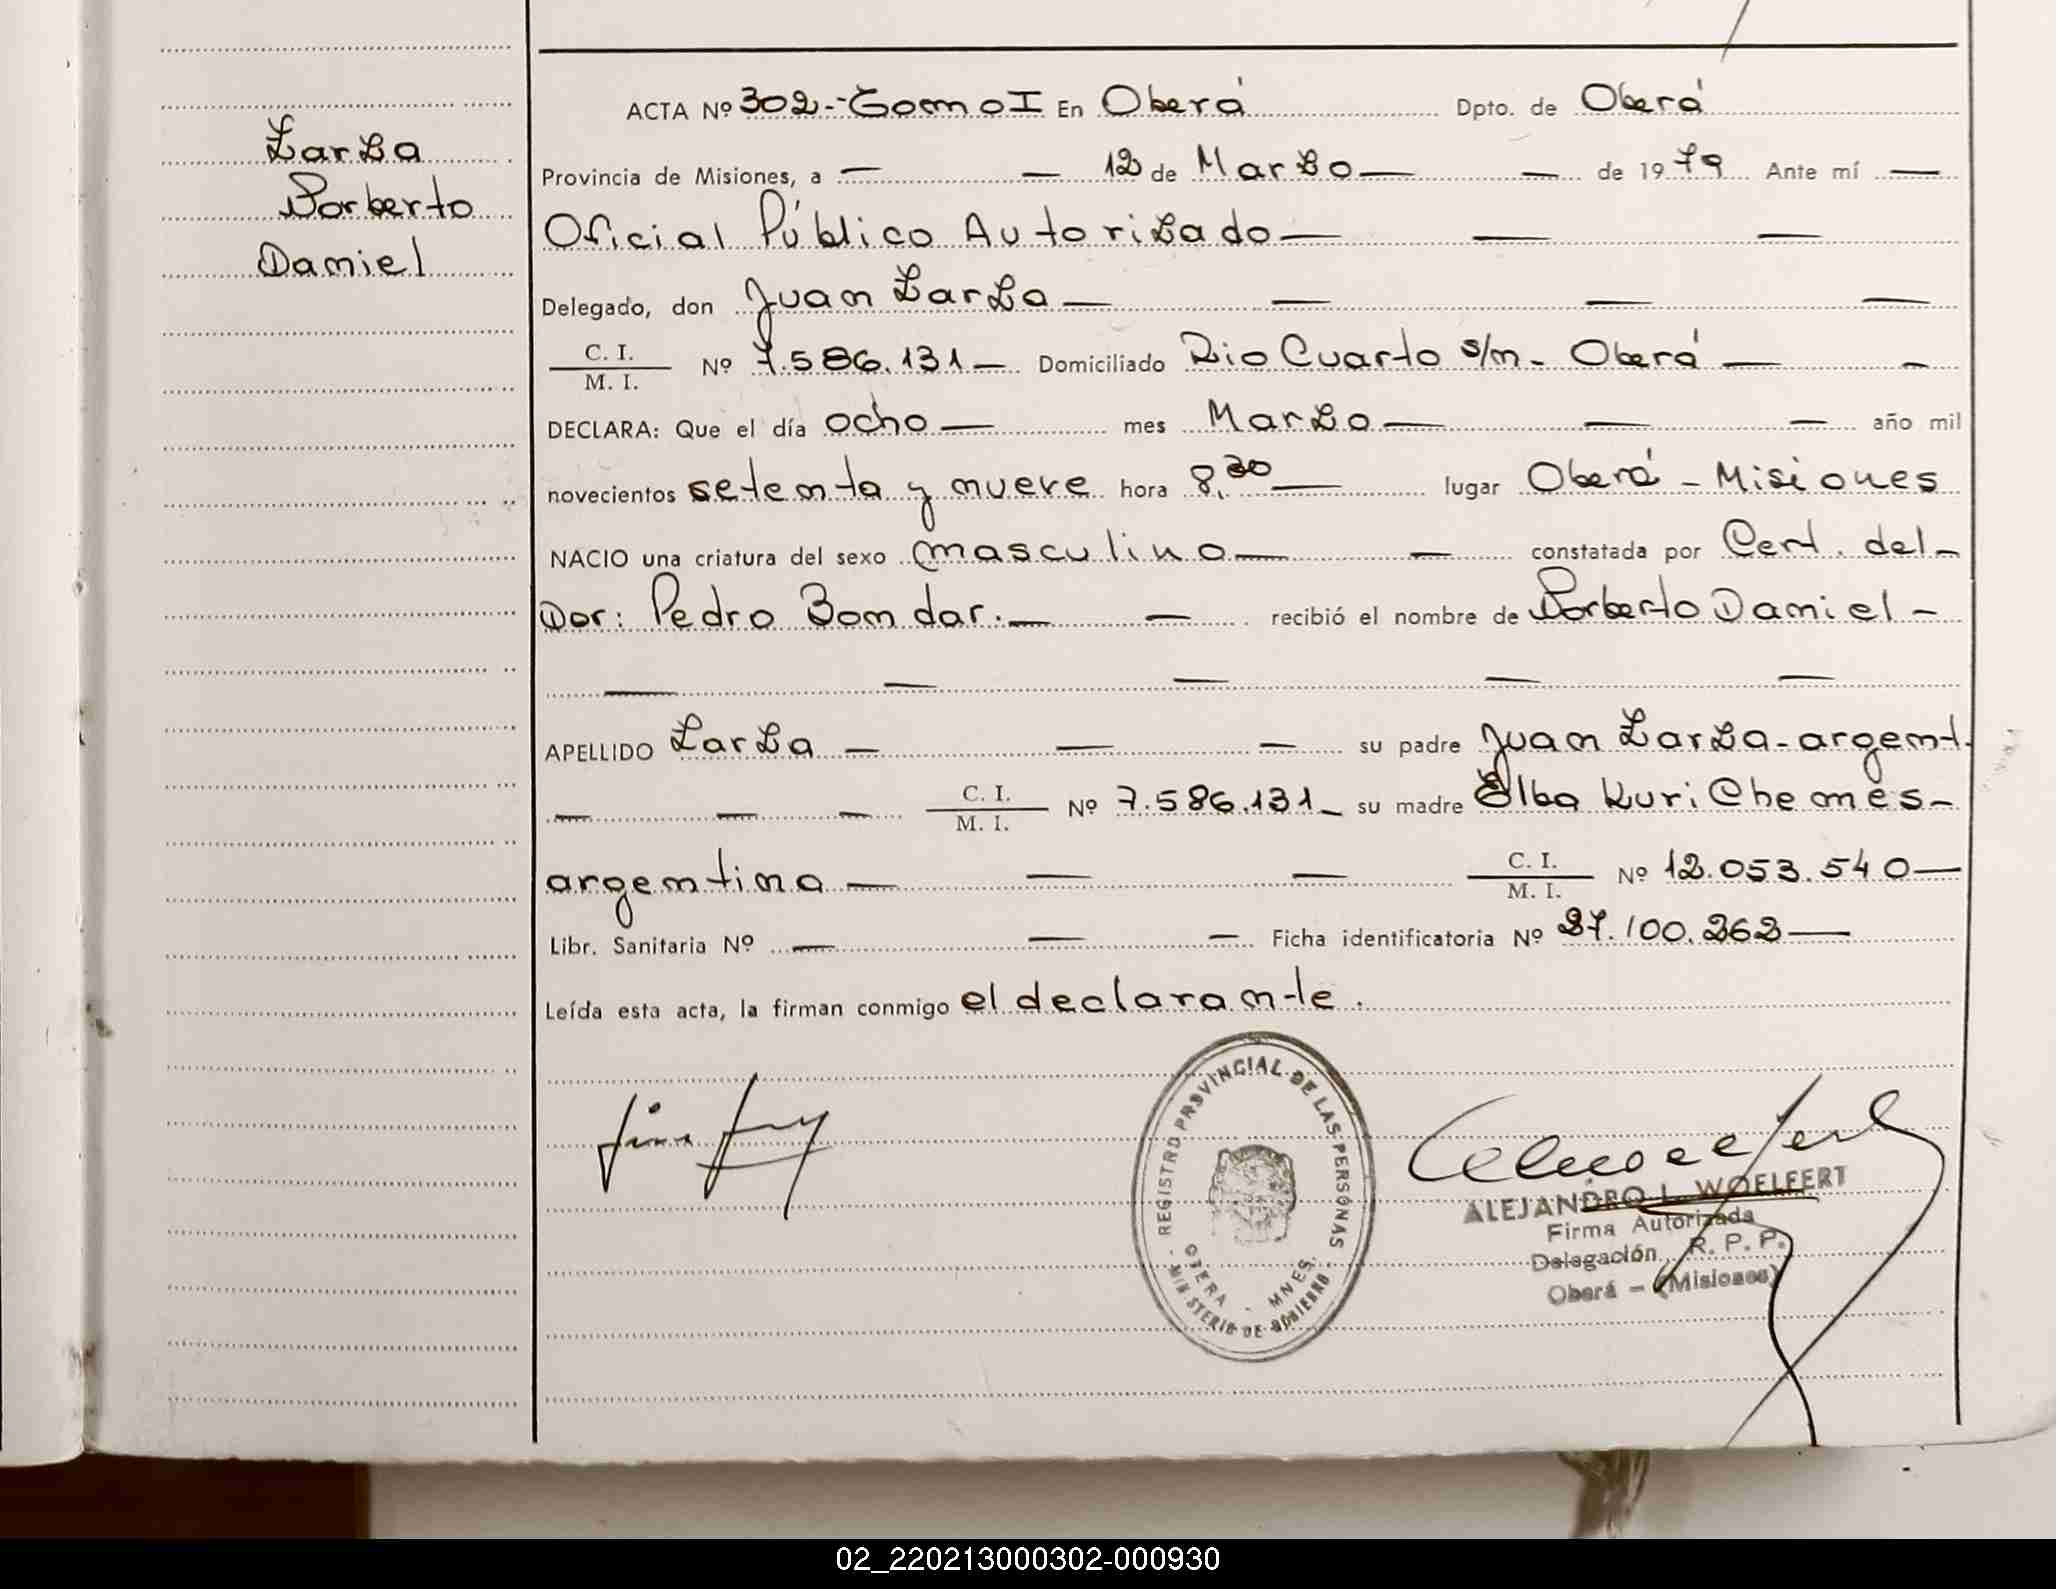 Zarza
Norberto
Daniel
ACTA Nº 302-Tomo I En Oberá Dpto. de Oberá
Provincia de Misiones, a — — 12 de Marzo — — de 1979 Ante mí —
Oficial Público Autorizado — — —
Delegado, don Juan Zarza — — — —
C. I.
M. I.
Nº 7.586.131 — Domiciliado Rio Cuarto s/n - Oberá — —
DECLARA: Que el día ocho — mes Marzo — — — año mil
novecientos setenta y nueve hora 8,30 — lugar Oberá - Misiones
NACIO una criatura del sexo masculino — — constatada por Cert. del -
Dor: Pedro Bondar. — — recibió el nombre de Norberto Daniel -
— — — — —
APELLIDO Zarza — — — su padre Juan Zarza - argent.
— — —
C. I.
M. I.
Nº 7.586.131 — su madre Elba Kuri Chemes -
argentina — — —
C. I.
M. I.
Nº 12.053.540 —
Libr. Sanitaria Nº — — — Ficha identificatoria Nº 27.100.262 —
Leída esta acta, la firman conmigo el declarante.
REGISTRO PROVINCIAL DE LAS PERSONAS
OBERA - MNES.
MINISTERIO DE GOBIERNO
ALEJANDRO L. WOELFERT
Firma Autorizada
Delegación R. P. P.
Oberá - (Misiones)
02_220213000302-000930